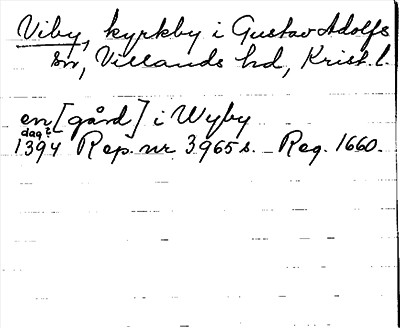 Viby, kyrkby i Gustav Adolfs
sn, Villands hd, Krist. l.
en [gård] i Wyby
dag?
1394 Rep. nr 3965 s. Reg. 1660.